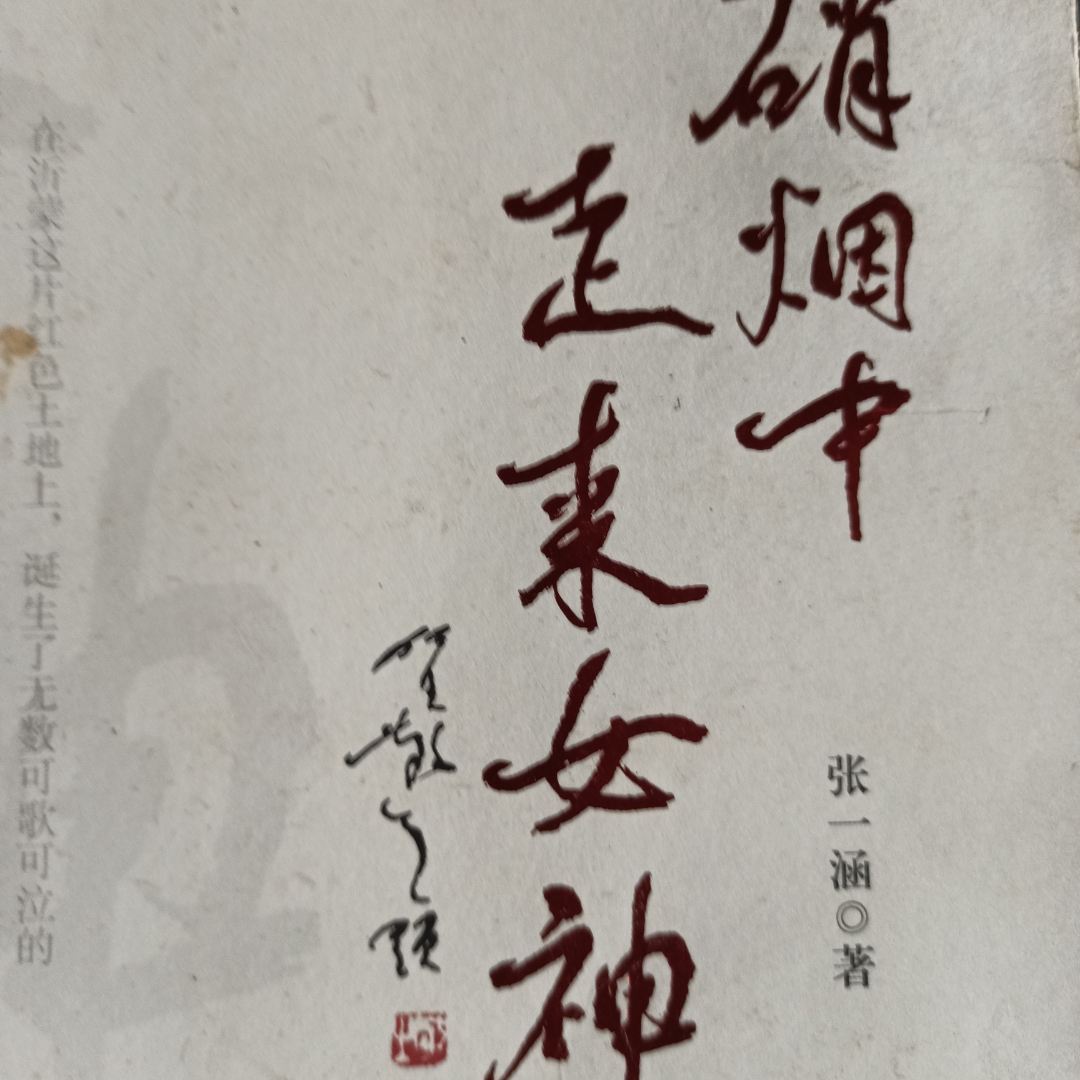 硝烟中
走来女神
张一涵◎著
贺敬之题
在沂蒙这片红色土地上，诞生了无数可歌可泣的